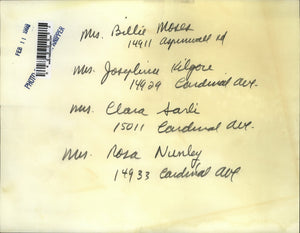 FEB 11 1968
PHOTO
Mrs. Billie Moses
14911 Aspinwall rd
Mrs. Josephine Kilgore
14929 Cardinal Ave.
Mrs. Clara Sarli
15011 Cardinal Ave.
Mrs. Rosa Nunley
14933 Cardinal Ave